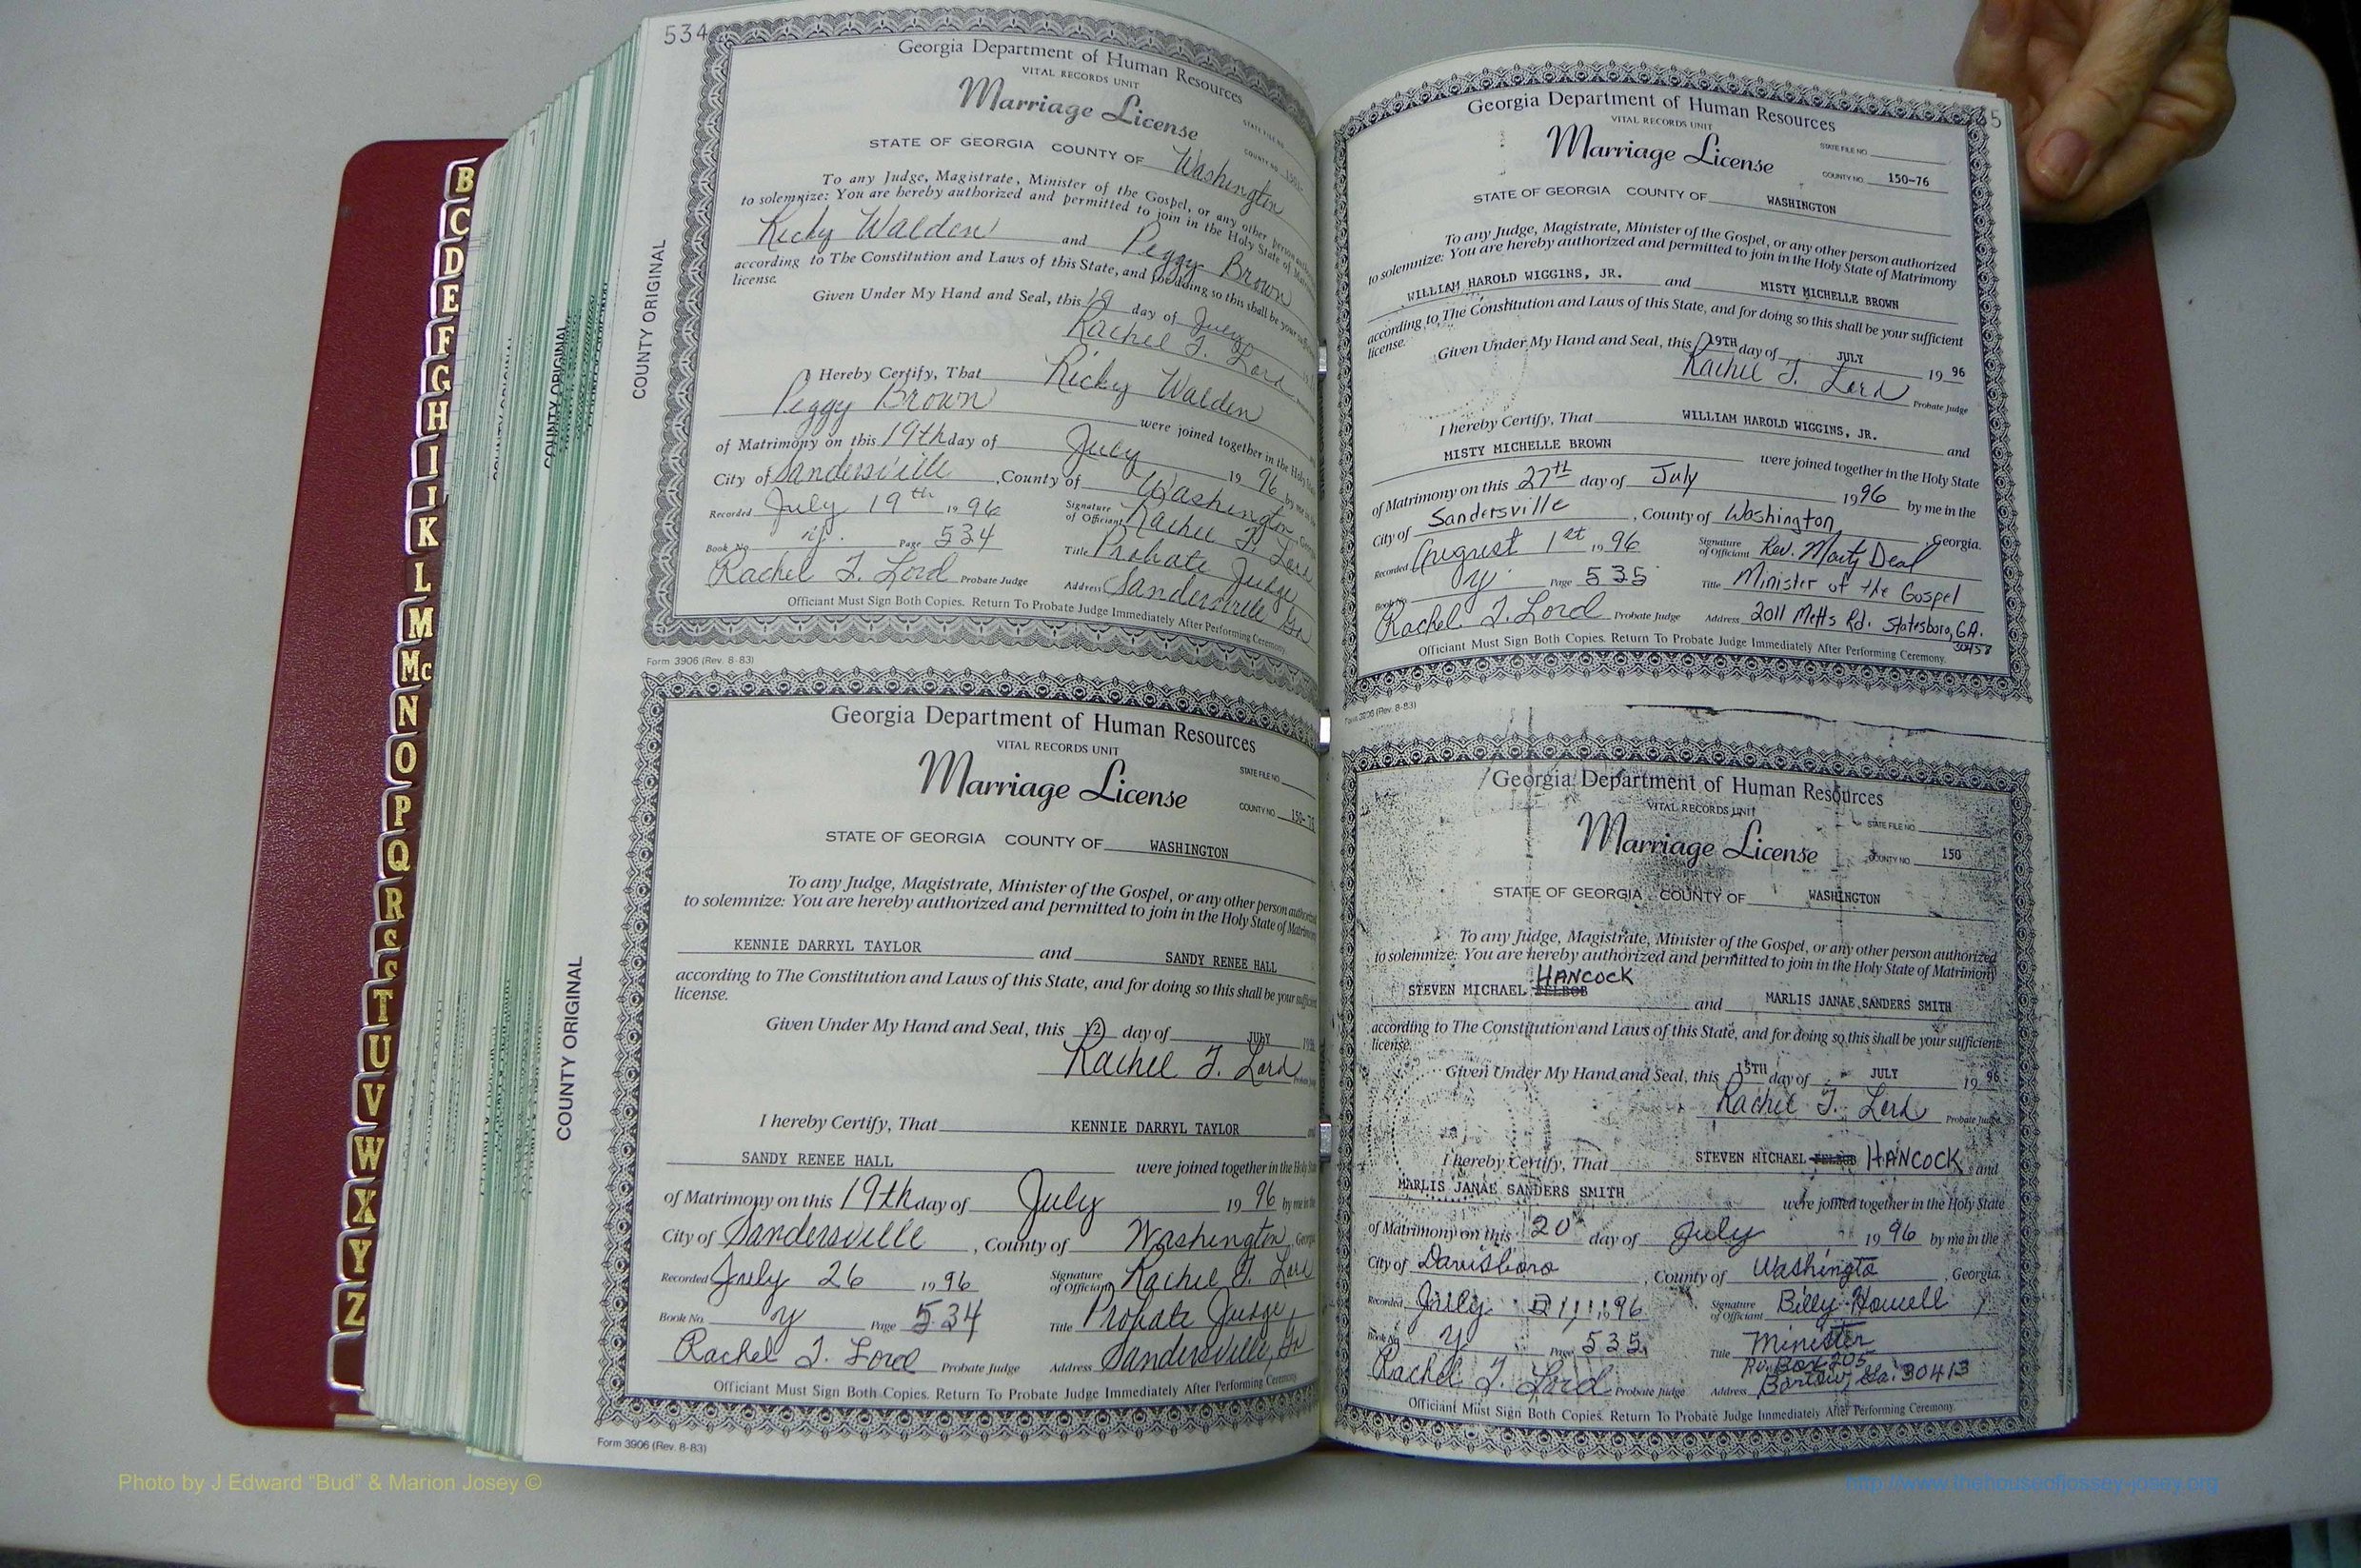 534
Georgia Department of Human Resources
VITAL RECORDS UNIT
Marriage License
STATE FILE NO.
COUNTY NO.
STATE OF GEORGIA COUNTY OF Washington
To any Judge, Magistrate, Minister of the Gospel, or any other person
to solemnize: You are hereby authorized and permitted to join in the Holy State of
Ricky Walden and Peggy Brown
according to The Constitution and Laws of this State, and for doing so this shall be your
license.
Given Under My Hand and Seal, this 19 day of July
Rachel T. Lord
I Hereby Certify, That Ricky Walden
Peggy Brown were joined together in the Holy
of Matrimony on this 19th day of July 19 96 by me in the
City of Sandersville, County of Washington
Recorded July 19th 1996 Signature of Officiant Rachel T. Lord
Book No. Y Page 534 Title Probate Judge
Rachel T. Lord Probate Judge Address Sandersville Ga
Officiant Must Sign Both Copies. Return To Probate Judge Immediately After Performing Ceremony.
Form 3906 (Rev. 8-83)
COUNTY ORIGINAL
Georgia Department of Human Resources
VITAL RECORDS UNIT
Marriage License
STATE FILE NO.
COUNTY NO. 150-75
STATE OF GEORGIA COUNTY OF WASHINGTON
To any Judge, Magistrate, Minister of the Gospel, or any other person authorized
to solemnize: You are hereby authorized and permitted to join in the Holy State of Matrimony
KENNIE DARRYL TAYLOR and SANDY RENEE HALL
according to The Constitution and Laws of this State, and for doing so this shall be your sufficient
license.
Given Under My Hand and Seal, this 12 day of JULY 1996
Rachel T. Lord
I hereby Certify, That KENNIE DARRYL TAYLOR and
SANDY RENEE HALL were joined together in the Holy State
of Matrimony on this 19th day of July 19 96 by me in the
City of Sandersville, County of Washington, Georgia
Recorded July 26 1996 Signature of Officiant Rachel T. Lord
Book No. Y Page 534 Title Probate Judge
Rachel T. Lord Probate Judge Address Sandersville, Ga
Officiant Must Sign Both Copies. Return To Probate Judge Immediately After Performing Ceremony.
Form 3906 (Rev. 8-83)
COUNTY ORIGINAL
Georgia Department of Human Resources
VITAL RECORDS UNIT
Marriage License
STATE FILE NO.
COUNTY NO. 150-76
STATE OF GEORGIA COUNTY OF WASHINGTON
To any Judge, Magistrate, Minister of the Gospel, or any other person authorized
to solemnize: You are hereby authorized and permitted to join in the Holy State of Matrimony
WILLIAM HAROLD WIGGINS, JR. and MISTY MICHELLE BROWN
according to The Constitution and Laws of this State, and for doing so this shall be your sufficient
license.
Given Under My Hand and Seal, this 19TH day of JULY 19 96
Rachel T. Lord Probate Judge
I hereby Certify, That WILLIAM HAROLD WIGGINS, JR. and
MISTY MICHELLE BROWN were joined together in the Holy State
of Matrimony on this 27th day of July 1996 by me in the
City of Sandersville, County of Washington, Georgia.
Recorded August 1st 1996 Signature of Officiant Rev. Marty Deal
Book No. Y Page 535 Title Minister of the Gospel
Rachel T. Lord Probate Judge Address 2011 Metts Rd. Statesboro, GA. 30458
Officiant Must Sign Both Copies. Return To Probate Judge Immediately After Performing Ceremony.
Form 3906 (Rev. 8-83)
Georgia Department of Human Resources
VITAL RECORDS UNIT
Marriage License
STATE FILE NO.
COUNTY NO. 150
STATE OF GEORGIA COUNTY OF WASHINGTON
To any Judge, Magistrate, Minister of the Gospel, or any other person authorized
to solemnize: You are hereby authorized and permitted to join in the Holy State of Matrimony
HANCOCK
STEVEN MICHAEL and MARLIS JANAE SANDERS SMITH
according to The Constitution and Laws of this State, and for doing so this shall be your sufficient
license.
Given Under My Hand and Seal, this 15TH day of JULY 19 96
Rachel T. Lord Probate Judge
I hereby Certify, That STEVEN MICHAEL HANCOCK and
MARLIS JANAE SANDERS SMITH were joined together in the Holy State
of Matrimony on this 20 day of July 1996 by me in the
City of Davisboro, County of Washington, Georgia.
Recorded July 1996 Signature of Officiant Billy Howell
Book No. Y Page 535 Title Minister
Rachel T. Lord Probate Judge Address P.O. Box 205 Bartow, Ga. 30413
Officiant Must Sign Both Copies. Return To Probate Judge Immediately After Performing Ceremony.
B
C
D
E
F
G
H
I
K
L
M
Mc
N
O
P
Q
R
S
T
U
V
W
X
Y
Z
Photo by J Edward “Bud” & Marion Josey ©
http://www.thehouseofjossey-josey.org